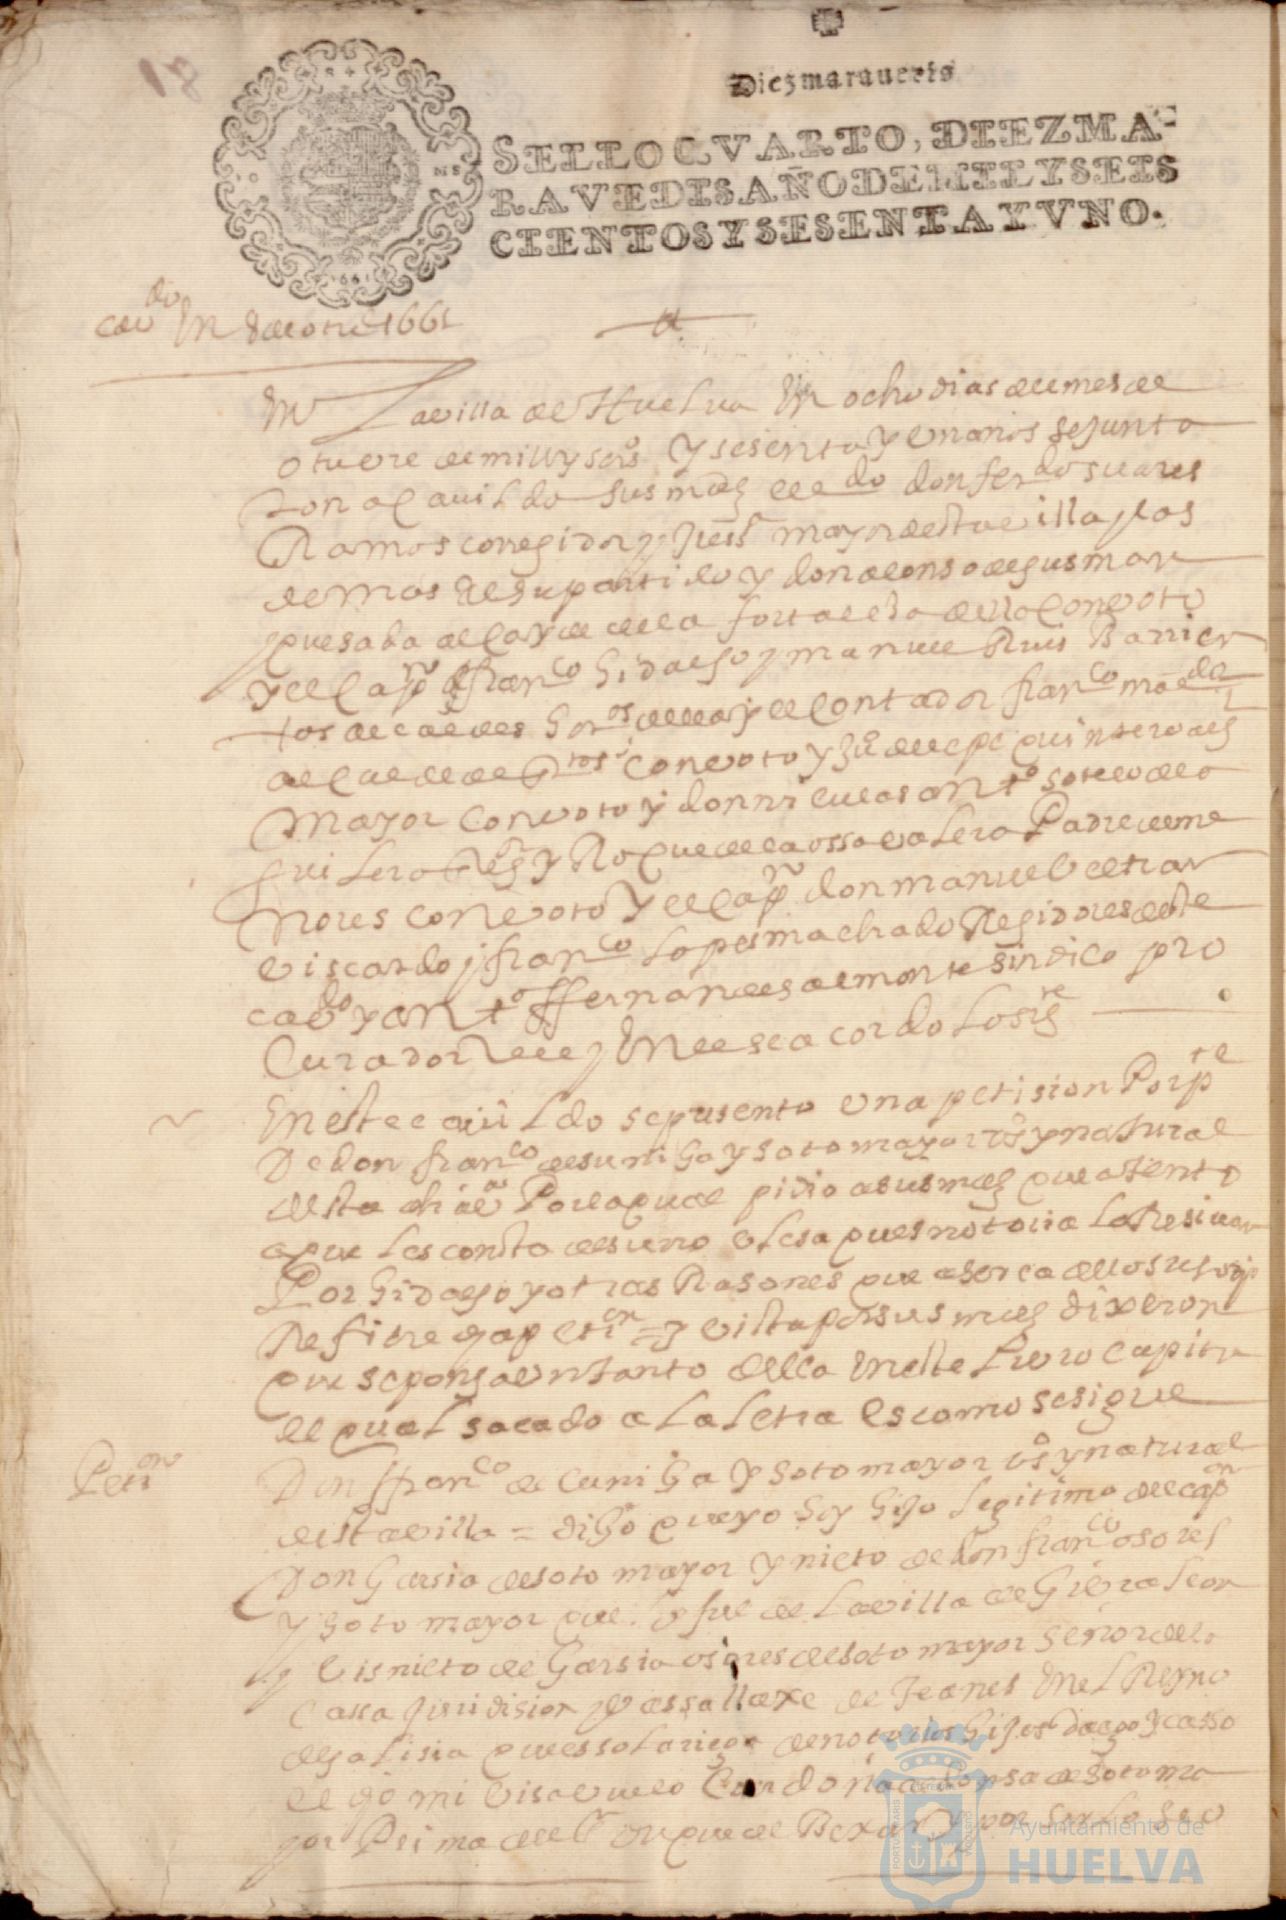 Diez maraueris
SELLO QVARTO, DIEZ MA-
RAVEDIS AÑO DE MIL Y SEIS
CIENTOS Y SESENTA Y VNO.
cavdo En 8 de otue 1661
En La villa de Huelua En ocho dias del mes de
otuvre de mill y seisos y sesenta y un anos se junta
ron a cavildo sus mds el ldo don ferdo suares
Ramos corregidor y jussa mayor desta villa y las
demas de su partido y don alonso de gusman
quesada alcayde de la fortalesa della con voto
y el capn franco hidalgo y manuel Ruis Barrien
tos alcaldes hordos della y el contador franco
alcalde de con voto y quintero alg
mayor con voto y don niculas anto sotelo de
guilera y Roque de la ossa valera Padre de me
nores con voto y el capn don manuel beltran
viscardo y franco Lopes machado Regidores deste
cavdo y anto ffernandes almonte sindico pro
curador y En el se acordo lo sigte
En este cavildo se presento una petision Por pte
De don franco de suniga y sotomayor vo y natural
desta dha va Por la qual pidio a sus mds que atento
a que les consta de su no vlesa pues notoria Le Resivan
Por hidalgo y otras Rasones que aserca dello
Refiere la petion y vista por sus mds dixeron
que se ponga un tanto della En este Livro capitu
el qual sacado a La Letra Es como se sigue
Petion
Don ffranco de cuniga y sotomayor vo y natural
desta villa = digo que yo soy hijo legitimo del capn
Don Garsia de soto mayor y nieto de don franco osores
y soto mayor que lo fue de La villa de Gibraleon
y visnieto de Garsia osores de soto mayor señor de la
cassa jurisdision y vassallaxe de Teanes En el Reyno
de galisia que es solariega de notorios hijos dalgo y casso
el dho mi visavuelo con doña alonsa de sotoma
yor Prima del duque de Bexar y por ser
Ayuntamiento de
HUELVA